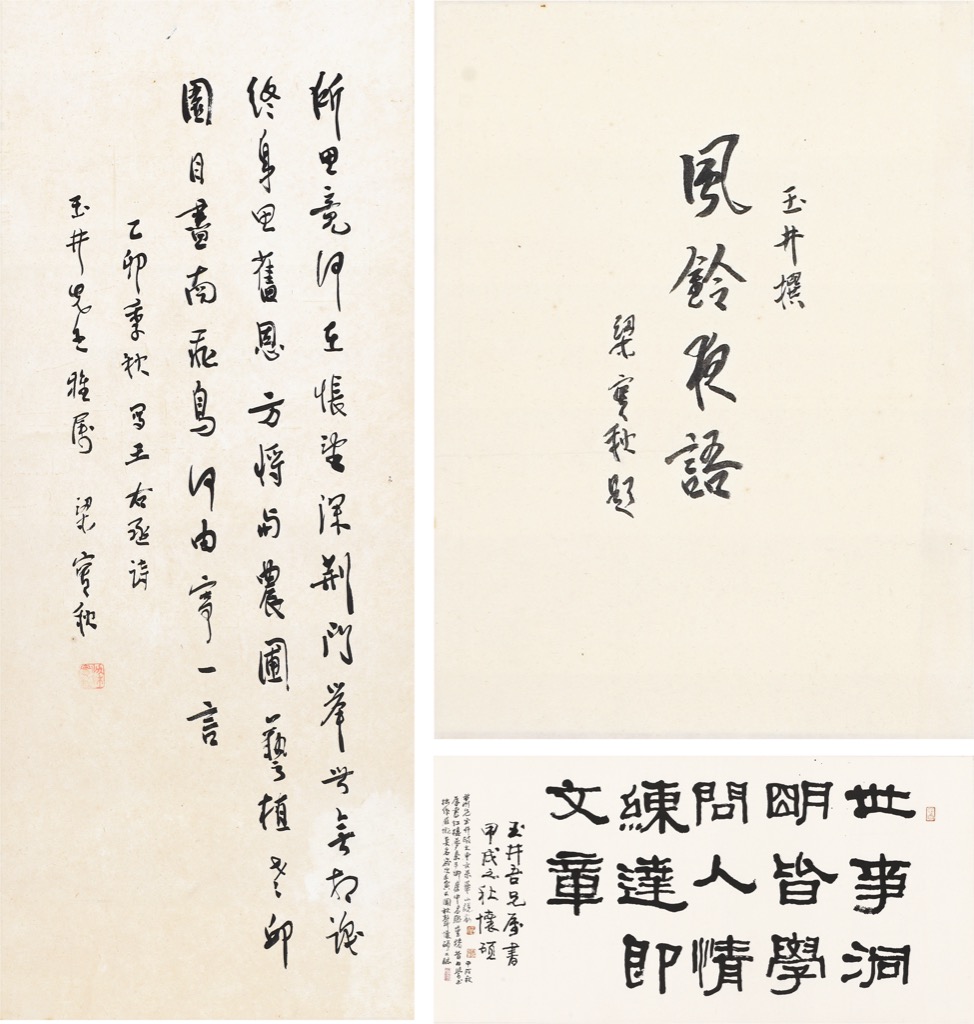 所思竟何在悵望深荆門举世無相識
終身思舊恩方將与農圃藝植老邱
園目盡南飛鳥何由寄一言
乙卯季秋寫王右丞詩
玉井先生雅属 梁實秋
玉井撰
風鈴夜語
梁實秋題
世事洞
明皆學
問人情
練達即
文章
玉井吾兄属書
甲戌之秋懷碩